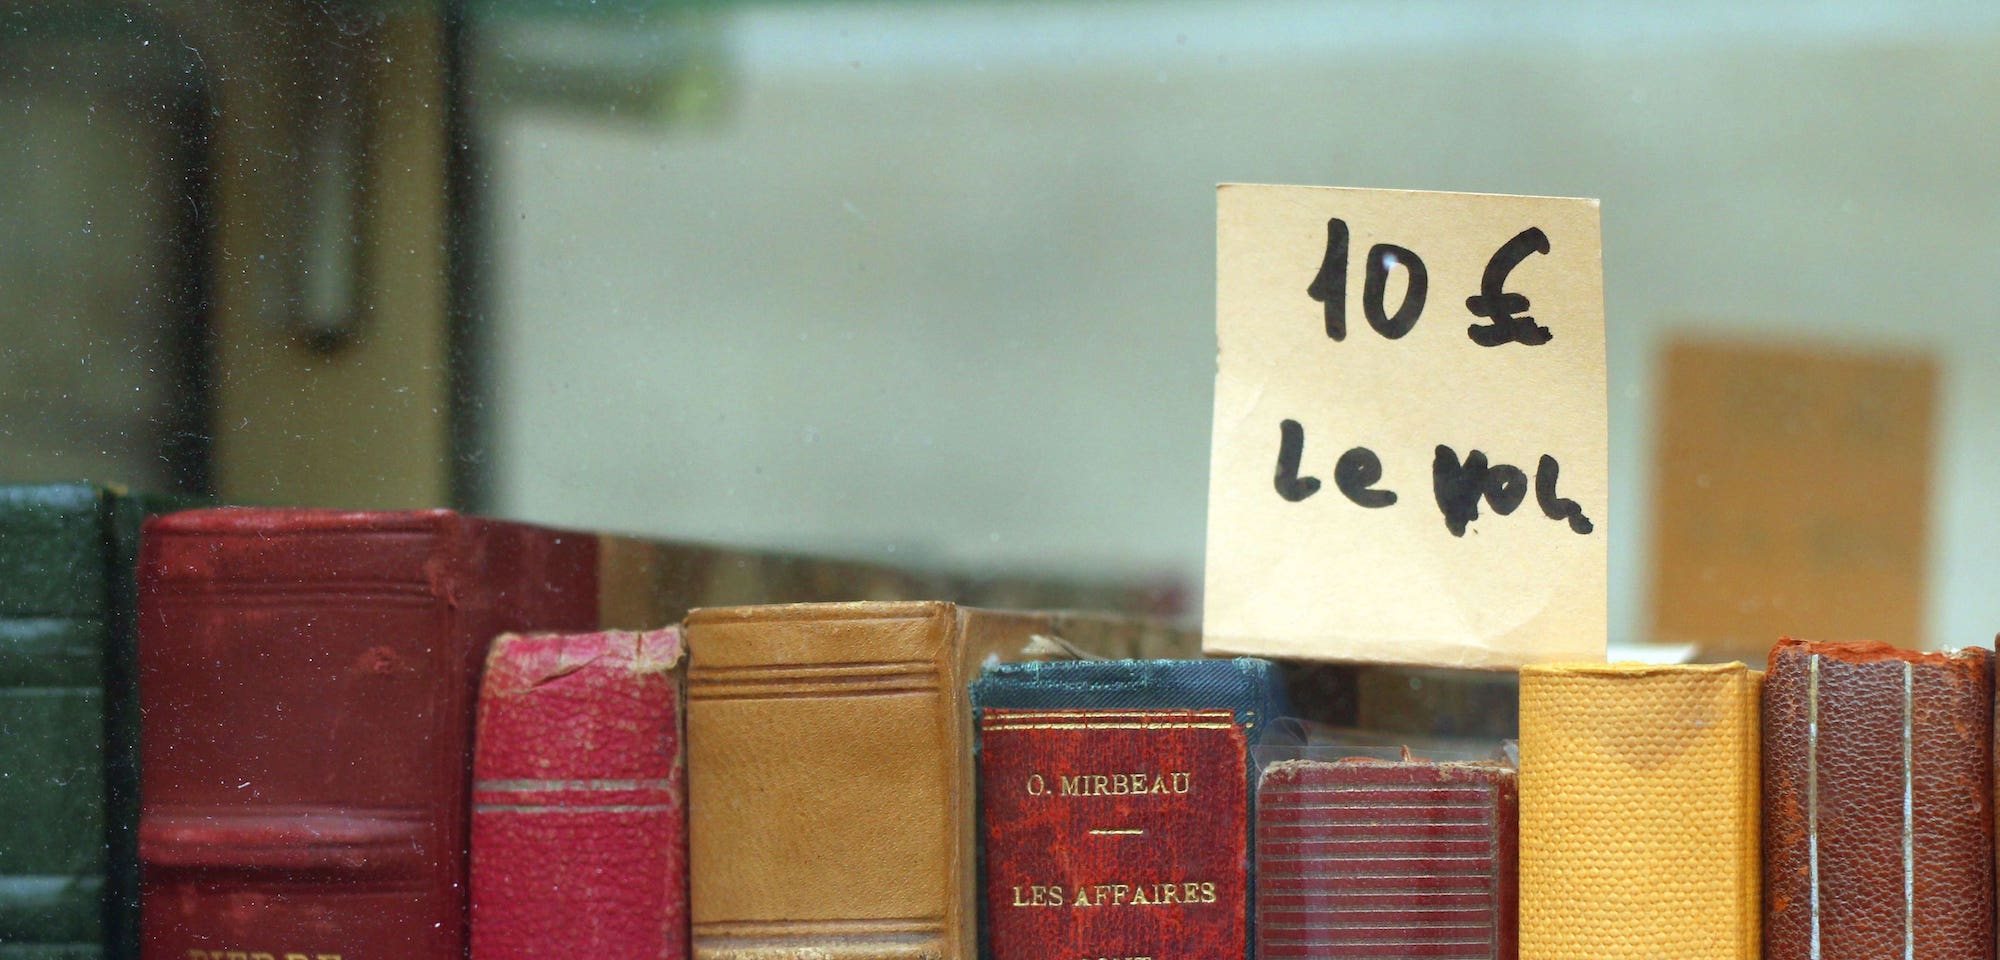 10 €
Le vol
O. MIRBEAU
LES AFFAIRES